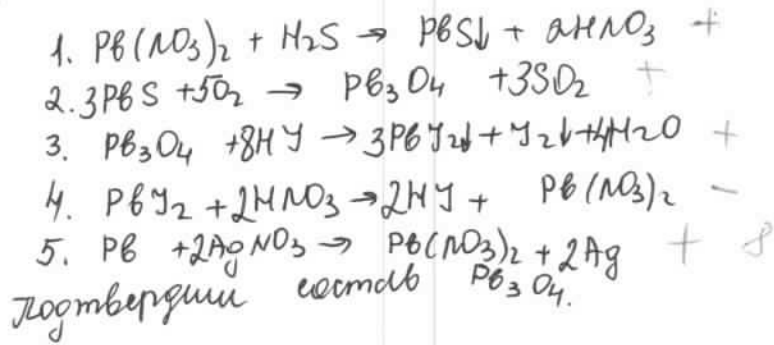 1. Pb(NO3)2 + H2S → PbS↓ + 2HNO3 +
2. 3PbS + 5O2 → Pb3O4 + 3SO2 +
3. Pb3O4 + 8HJ → 3PbJ2↓ + J2↓ + 4H2O +
4. PbJ2 + 2HNO3 → 2HJ + Pb(NO3)2 −
5. Pb + 2AgNO3 → Pb(NO3)2 + 2Ag + 8
подтвердили состав Pb3O4.